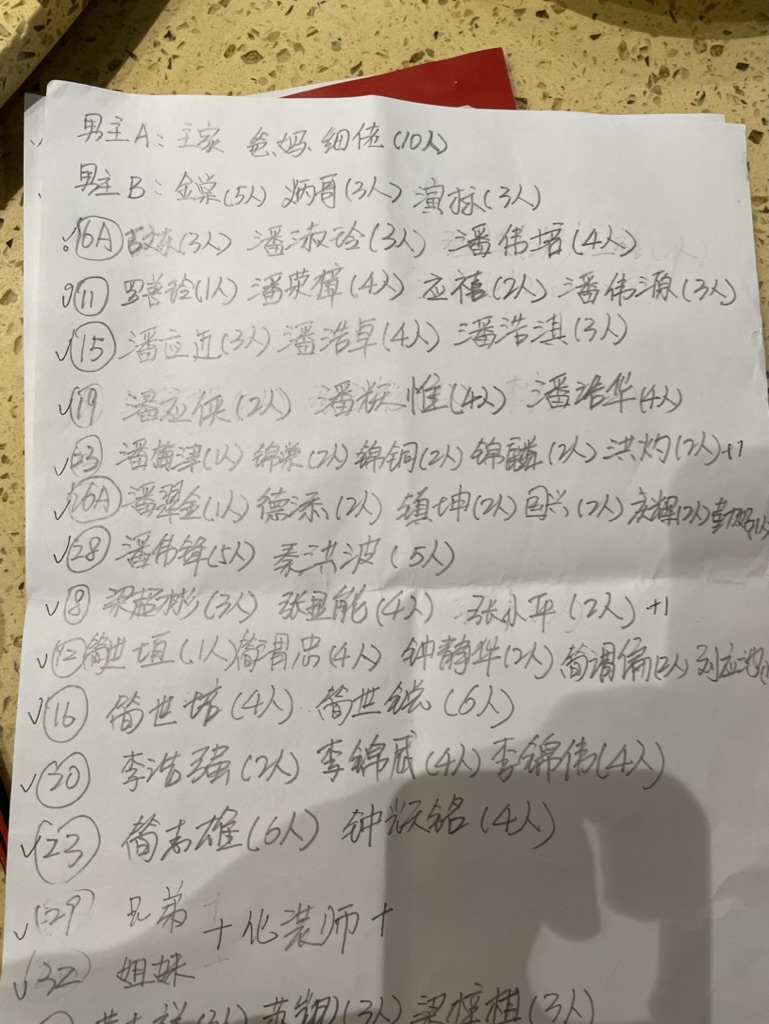 男主A: 主家 爸.妈. 细佬(10人)
男主B: 金棠(5人) 炳哥(3人) 演标(3人)
6A (3人) 潘淑玲(3人) 潘伟培(4人)
11 罗善玲(1人) 潘荣樟(4人) 应禧(2人) 潘伟源(3人)
15 潘应近(3人) 潘浩卓(4人) 潘浩淇(3人)
19 潘应侠(2人) 潘 惟(4人) 潘浩华(4人)
潘梅津(1人) 锦荣(2人) 锦铜(2人) 锦麟(2人) 洪灼(2人)+1
26A 潘翠金(1人) 德添(2人) 镇坤(2人) 国兴(2人) 庆辉(2人)
28 潘伟锋(5人) 秦洪波(5人)
8 梁超彬(3人) 张显能(4人) 张小平(2人) +1
12 简世垣(1人) 简谓忠(4人) 钟静华(2人) 简谓偏(2人)
16 简世培(4人) 简世 (6人)
30 李浩强(2人) 李锦威(4人) 李锦伟(4人)
23 简志雄(6人) 钟颂铭(4人)
29 兄弟 + 化装师 +
32 姐妹
(3人) (3人) 梁梓棋(3人)